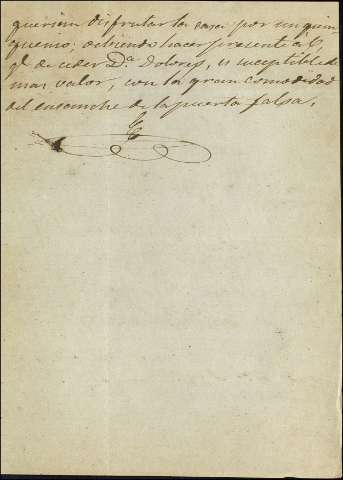 querian disfrutar la casa por un quin
quenio; debiendo hacer presente a V,
qe. de ceder Da. Dolores, es suceptible de
mas valor, con la gran comodidad
del ensanche de la puerta falsa,